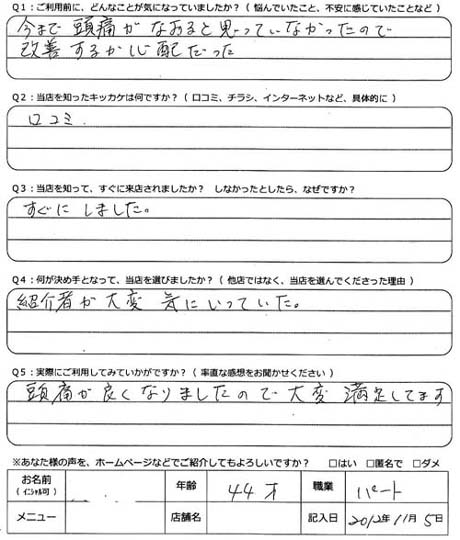 Q1：ご利用前に、どんなことが気になっていましたか？（ 悩んでいたこと、不安に感じていたことなど ）
今まで 頭痛が なおると思っていなかったので
改善するか心配だった
Q2：当店を知ったキッカケは何ですか？（ 口コミ、チラシ、インターネットなど、具体的に ）
口コミ.
Q3：当店を知って、すぐに来店されましたか？ しなかったとしたら、なぜですか？
すぐに しました。
Q4：何が決め手となって、当店を選びましたか？（ 他店ではなく、当店を選んでくださった理由 ）
紹介者が 大変 気にいっていた。
Q5：実際にご利用してみていかがですか？（ 率直な感想をお聞かせください ）
頭痛が良くなりましたので 大変 満足してます
※あなた様の声を、ホームページなどでご紹介してもよろしいですか？ □はい □匿名で □ダメ
お名前 年齢 44才 職業 パート
（ｲﾆｼｬﾙ可）
メニュー 店舗名 記入日 2012年11月5日